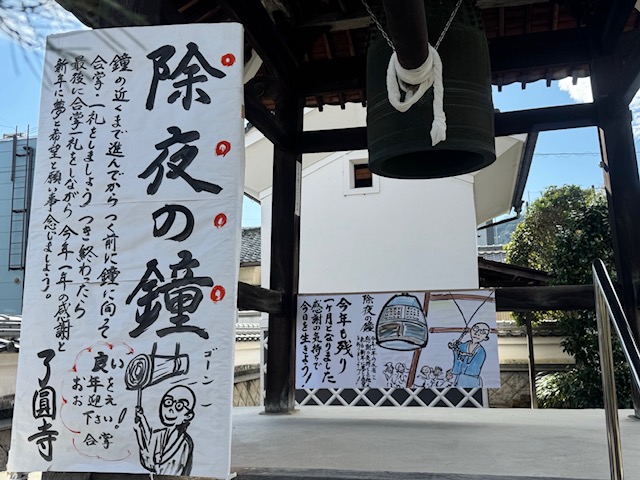 除夜の鐘
鐘の近くまで進んでから つく前に鐘に向って
合掌・一礼をしましょう つき終わったら
最後に合掌一礼をしながら 今年一年の感謝と
新年に夢と希望と願い事念じましょう。
ゴーン
良い
お年を
お迎え
下さい!
合掌
了圓寺
今年も残り
一ヶ月となりました
感謝の気持で
今日を生きよう!
除夜の鐘